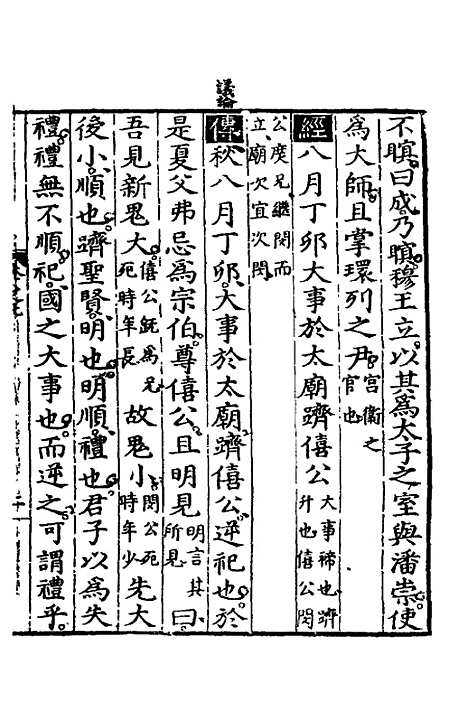 議論
不瞑曰成乃瞑穆王立以其為太子之室與潘崇使
為大師且掌環列之尹宮衞之官也
經八月丁卯大事於太廟躋僖公大事禘也躋升也僖公閔
公庶兄繼閔而立廟欠宜次閔
傳秋八月丁卯大事於太廟躋僖公逆祀也於
是夏父弗忌為宗伯尊僖公且明見明言其所見曰
吾見新鬼大僖公旣為兄死時年長故鬼小閔公死時年少先大
後小順也躋聖賢明也明順禮也君子以為失
禮禮無不順祀國之大事也而逆之可謂禮乎